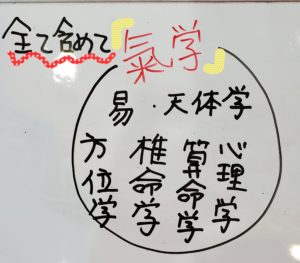 全て含めて『氣学』
易・天体学
心理学
算命学
椎命学
方位学